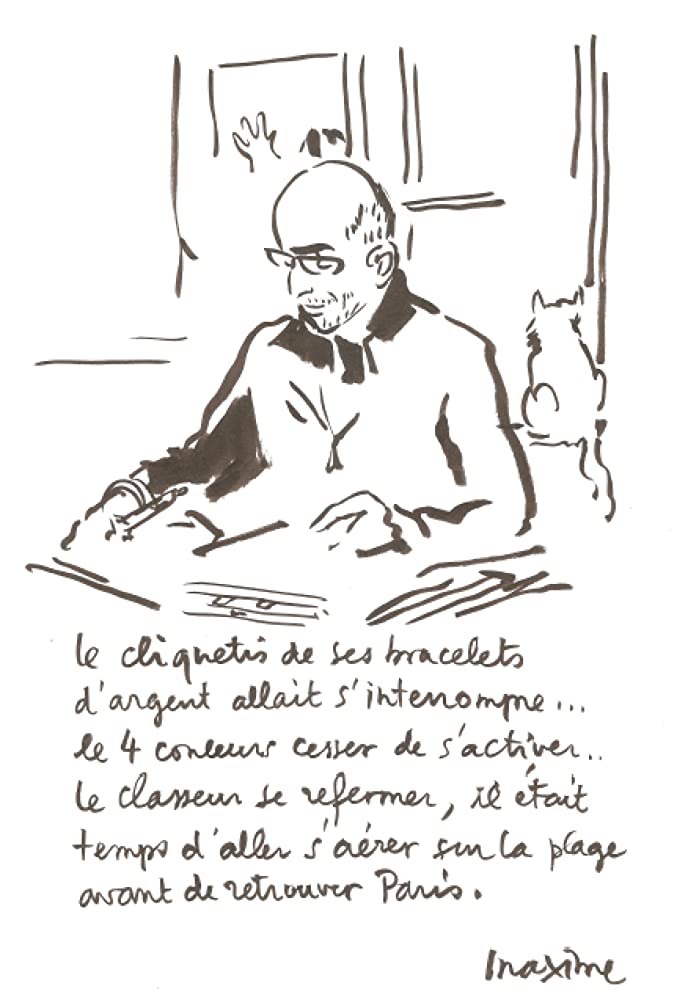 le cliquetis de ses bracelets
d'argent allait s'interrompre...
le 4 couleurs cesser de s'activer..
le classeur se refermer, il était
temps d'aller s'aérer sur la plage
avant de retrouver Paris.
Maxime